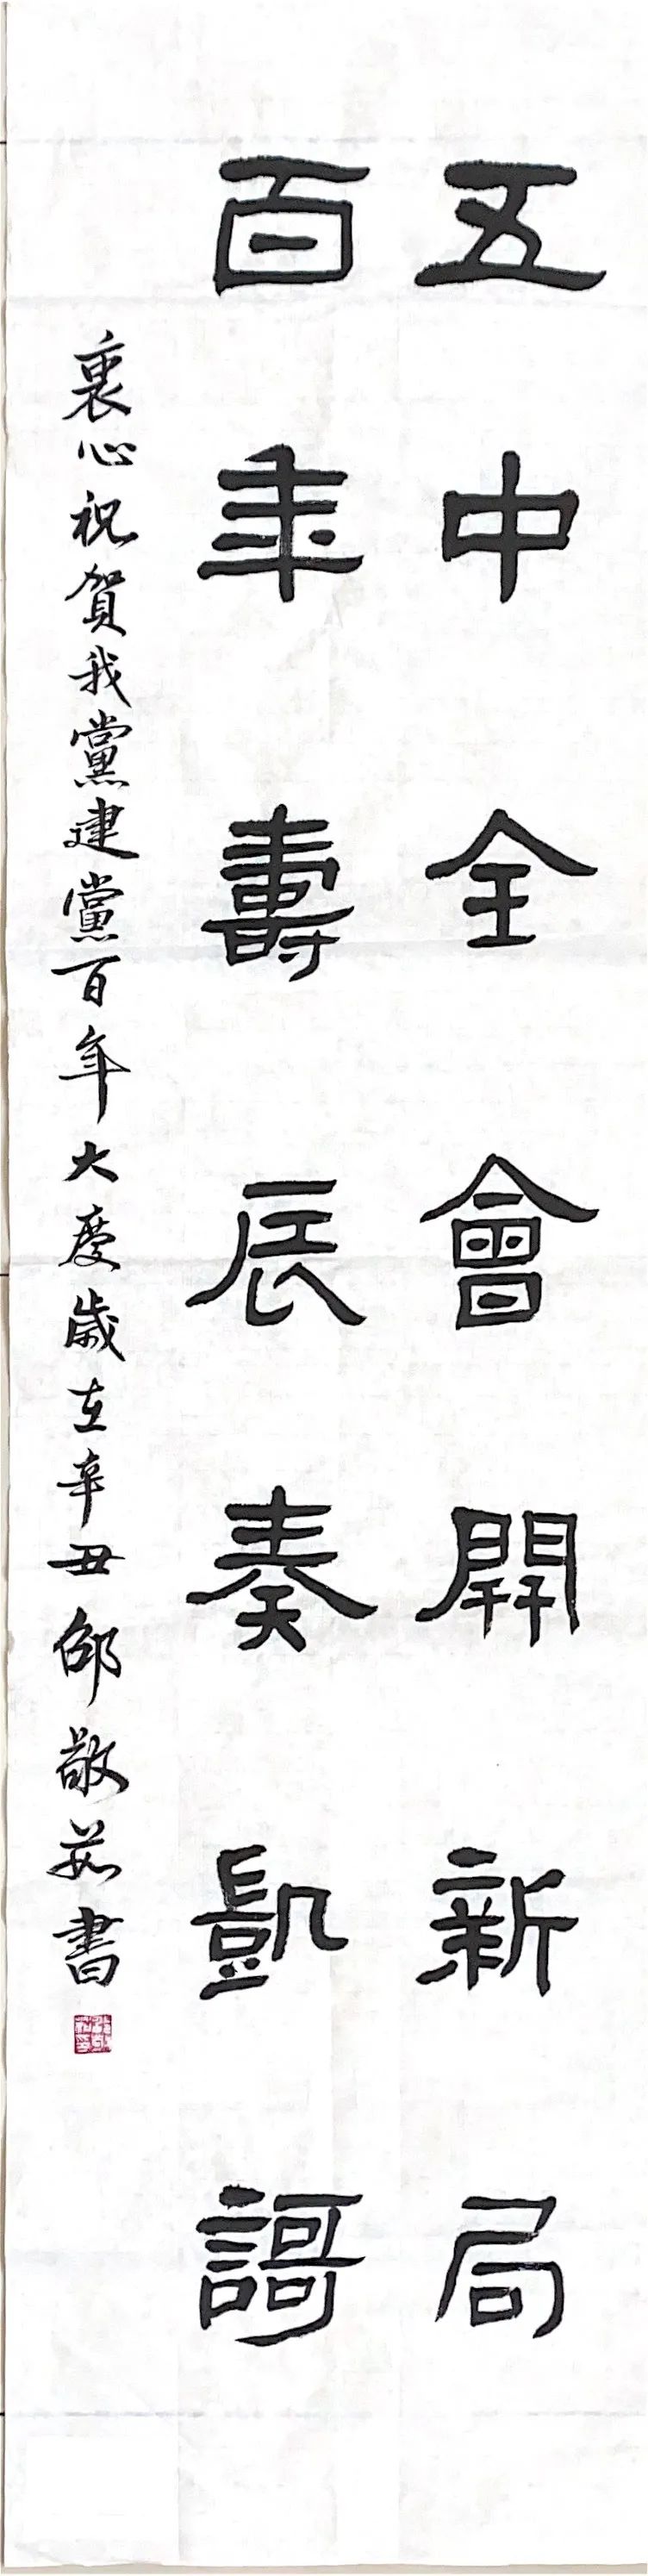 五中全會開新局
百年壽辰奏凱謌
衷心祝賀我黨建黨百年大慶歲在辛丑邵敬茹書